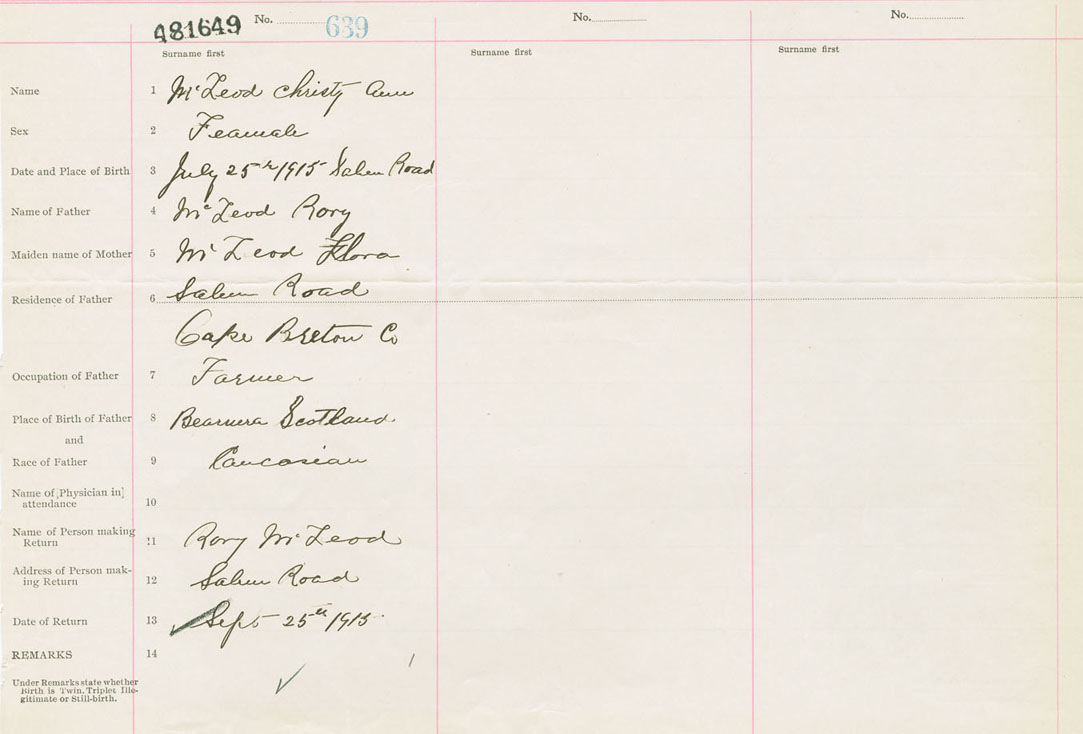 481649 No. 639 No. No.
Surname first Surname first Surname first
Name 1 McLeod Christy Ann
Sex 2 Feamale
Date and Place of Birth 3 July 25th 1915 Salem Road
Name of Father 4 McLeod Rory
Maiden name of Mother 5 McLeod Flora
Residence of Father 6 Salem Road
Cape Breton Co
Occupation of Father 7 Farmer
Place of Birth of Father 8 Bearnera Scotland
and
Race of Father 9 Caucasian
Name of [Physician in]
attendance 10
Name of Person making
Return 11 Rory McLeod
Address of Person mak-
ing Return 12 Salem Road
Date of Return 13 Sept 25th 1915
REMARKS 14
Under Remarks state whether
Birth is Twin, Triplet Ille-
gitimate or Still-birth.